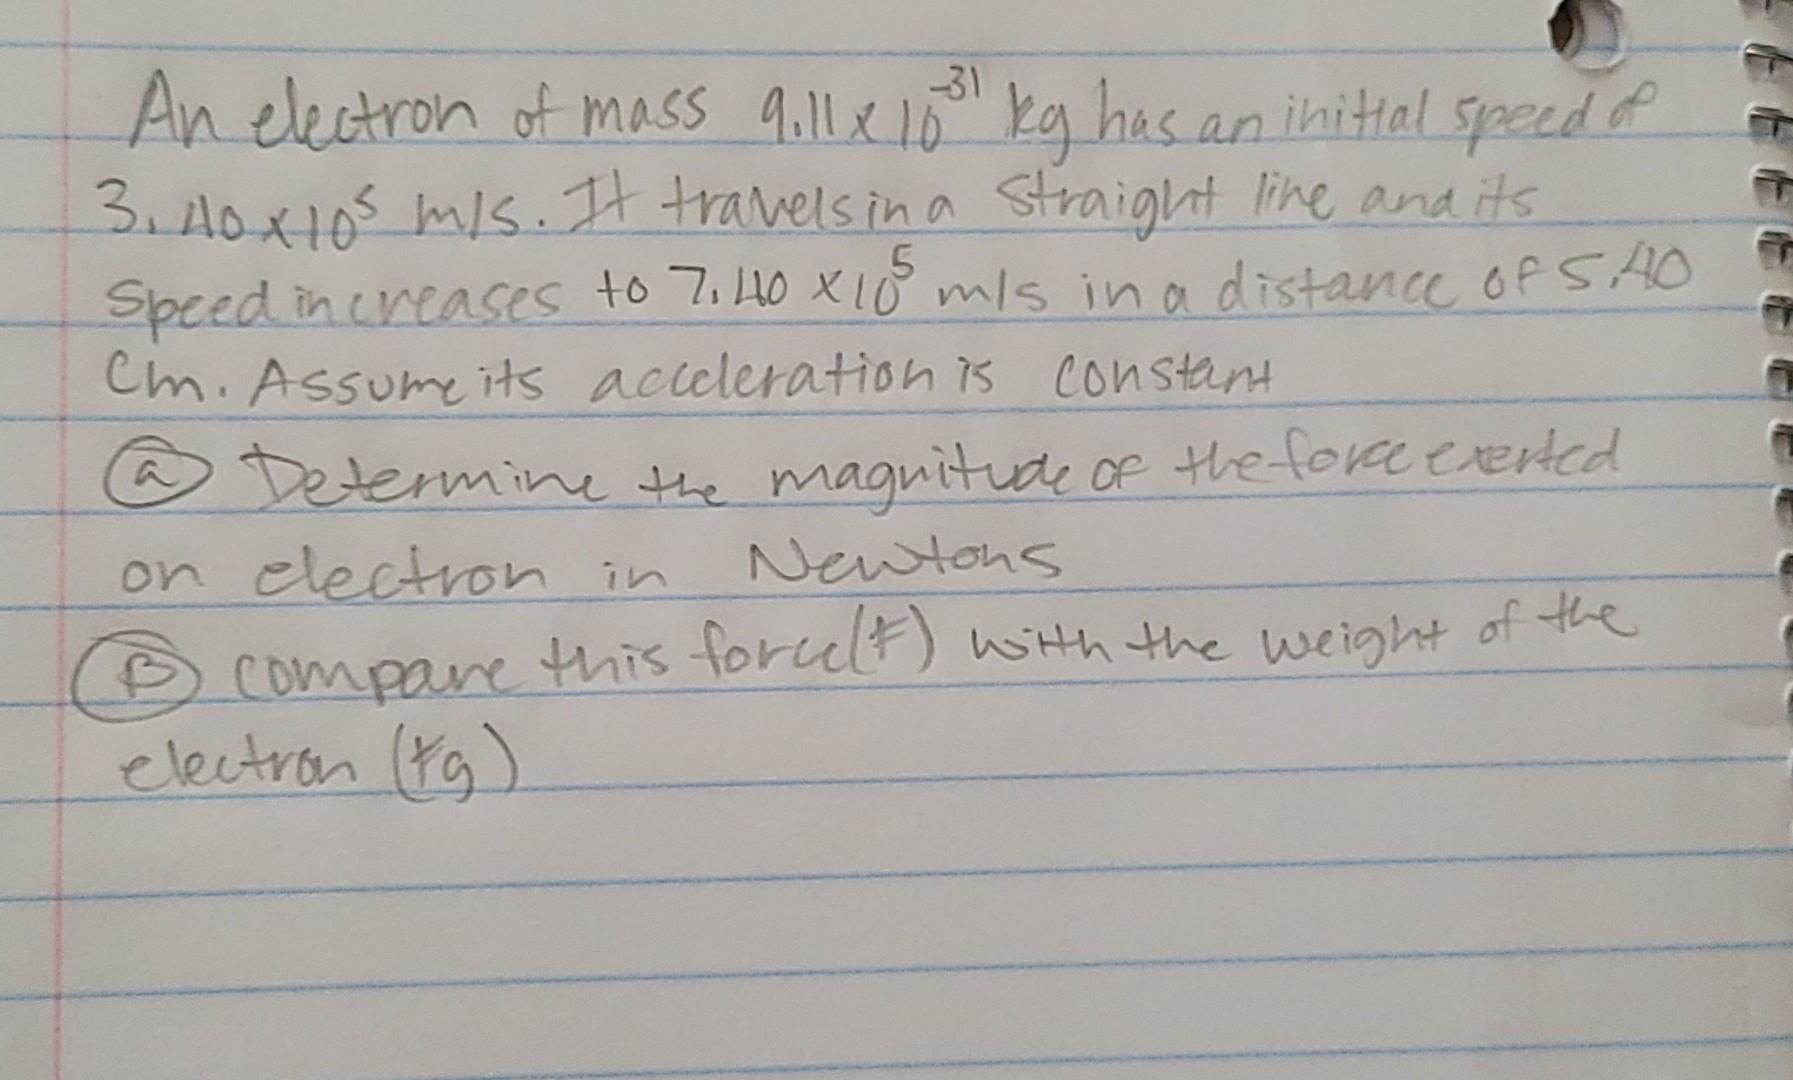 An electron of mass 9.11 x 10^-31 kg has an initial speed of
3.40 x 10^5 m/s. It travels in a straight line and its
speed increases to 7.40 x 10^5 m/s in a distance of 5.40
cm. Assume its acceleration is constant
(a) Determine the magnitude of the force exerted
on electron in Newtons
(B) compare this force (F) with the weight of the
electron (Fg)